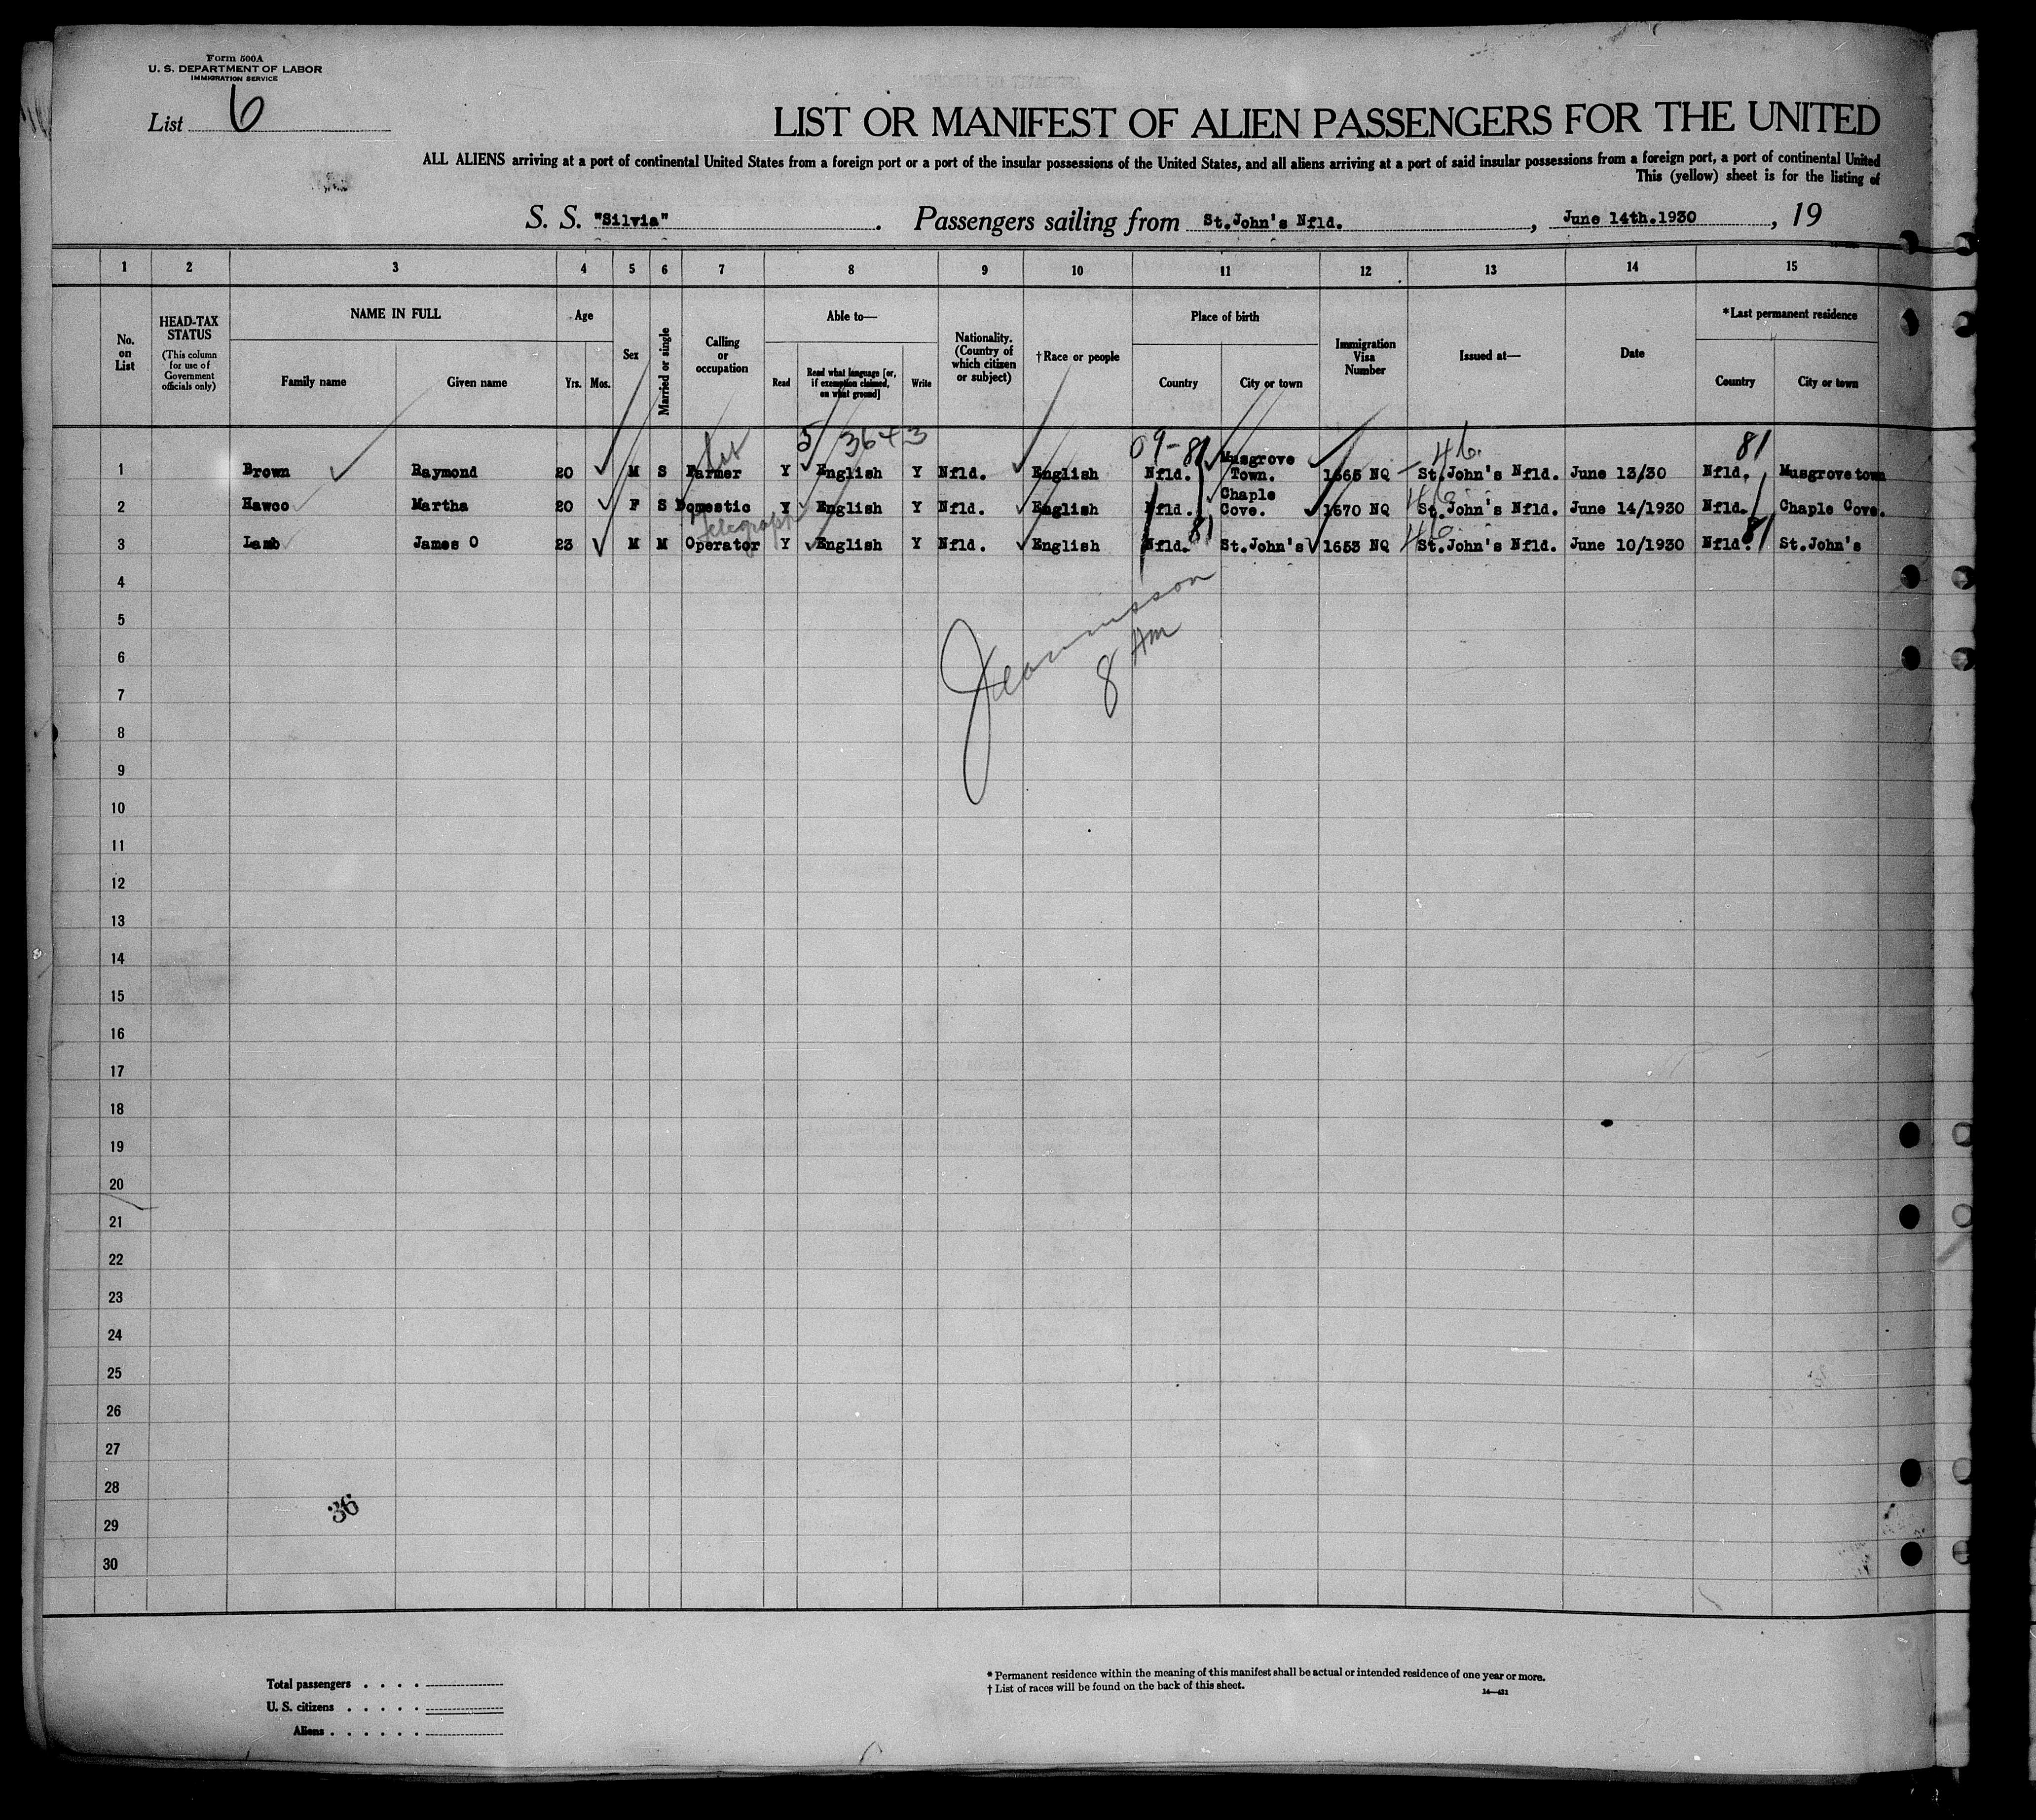 Form 500A
U. S. DEPARTMENT OF LABOR
IMMIGRATION SERVICE
List 6
LIST OR MANIFEST OF ALIEN PASSENGERS FOR THE UNITED
ALL ALIENS arriving at a port of continental United States from a foreign port or a port of the insular possessions of the United States, and all aliens arriving at a port of said insular possessions from a foreign port, a port of continental United
This (yellow) sheet is for the listing of
S. S. "Silvia" . Passengers sailing from St.John's Nfld. , June 14th.1930 , 19
1 2 3 4 5 6 7 8 9 10 11 12 13 14 15
No. on List
HEAD-TAX STATUS
(This column for use of Government officials only)
NAME IN FULL
Family name Given name
Age
Yrs. Mos.
Sex
Married or single
Calling or occupation
Able to—
Read
Read what language [or, if exemption claimed, on what ground]
Write
Nationality. (Country of which citizen or subject)
†Race or people
Place of birth
Country City or town
Immigration Visa Number
Issued at—
Date
*Last permanent residence
Country City or town
5 3643 09-81 46. 81
1 Brown Raymond 20 M S Farmer Y English Y Nfld. English Nfld. Musgrove Town. 1665 NQ St.John's Nfld. June 13/30 Nfld. Musgrovetown
46
2 Hawco Martha 20 F S Domestic Y English Y Nfld. English Nfld. Chaple Cove. 1670 NQ St.John's Nfld. June 14/1930 Nfld. Chaple Cove.
Telegraph 81 46 81
3 Lamb James O 23 M M Operator Y English Y Nfld. English Nfld. St.John's 1653 NQ St.John's Nfld. June 10/1930 Nfld. St.John's
4
5
6
8 Am
7
8
9
10
11
12
13
14
15
16
17
18
19
20
21
22
23
24
25
26
27
28
36
29
30
Total passengers . . . .
U. S. citizens . . . . .
Aliens . . . . . .
* Permanent residence within the meaning of this manifest shall be actual or intended residence of one year or more.
† List of races will be found on the back of this sheet.
14—431